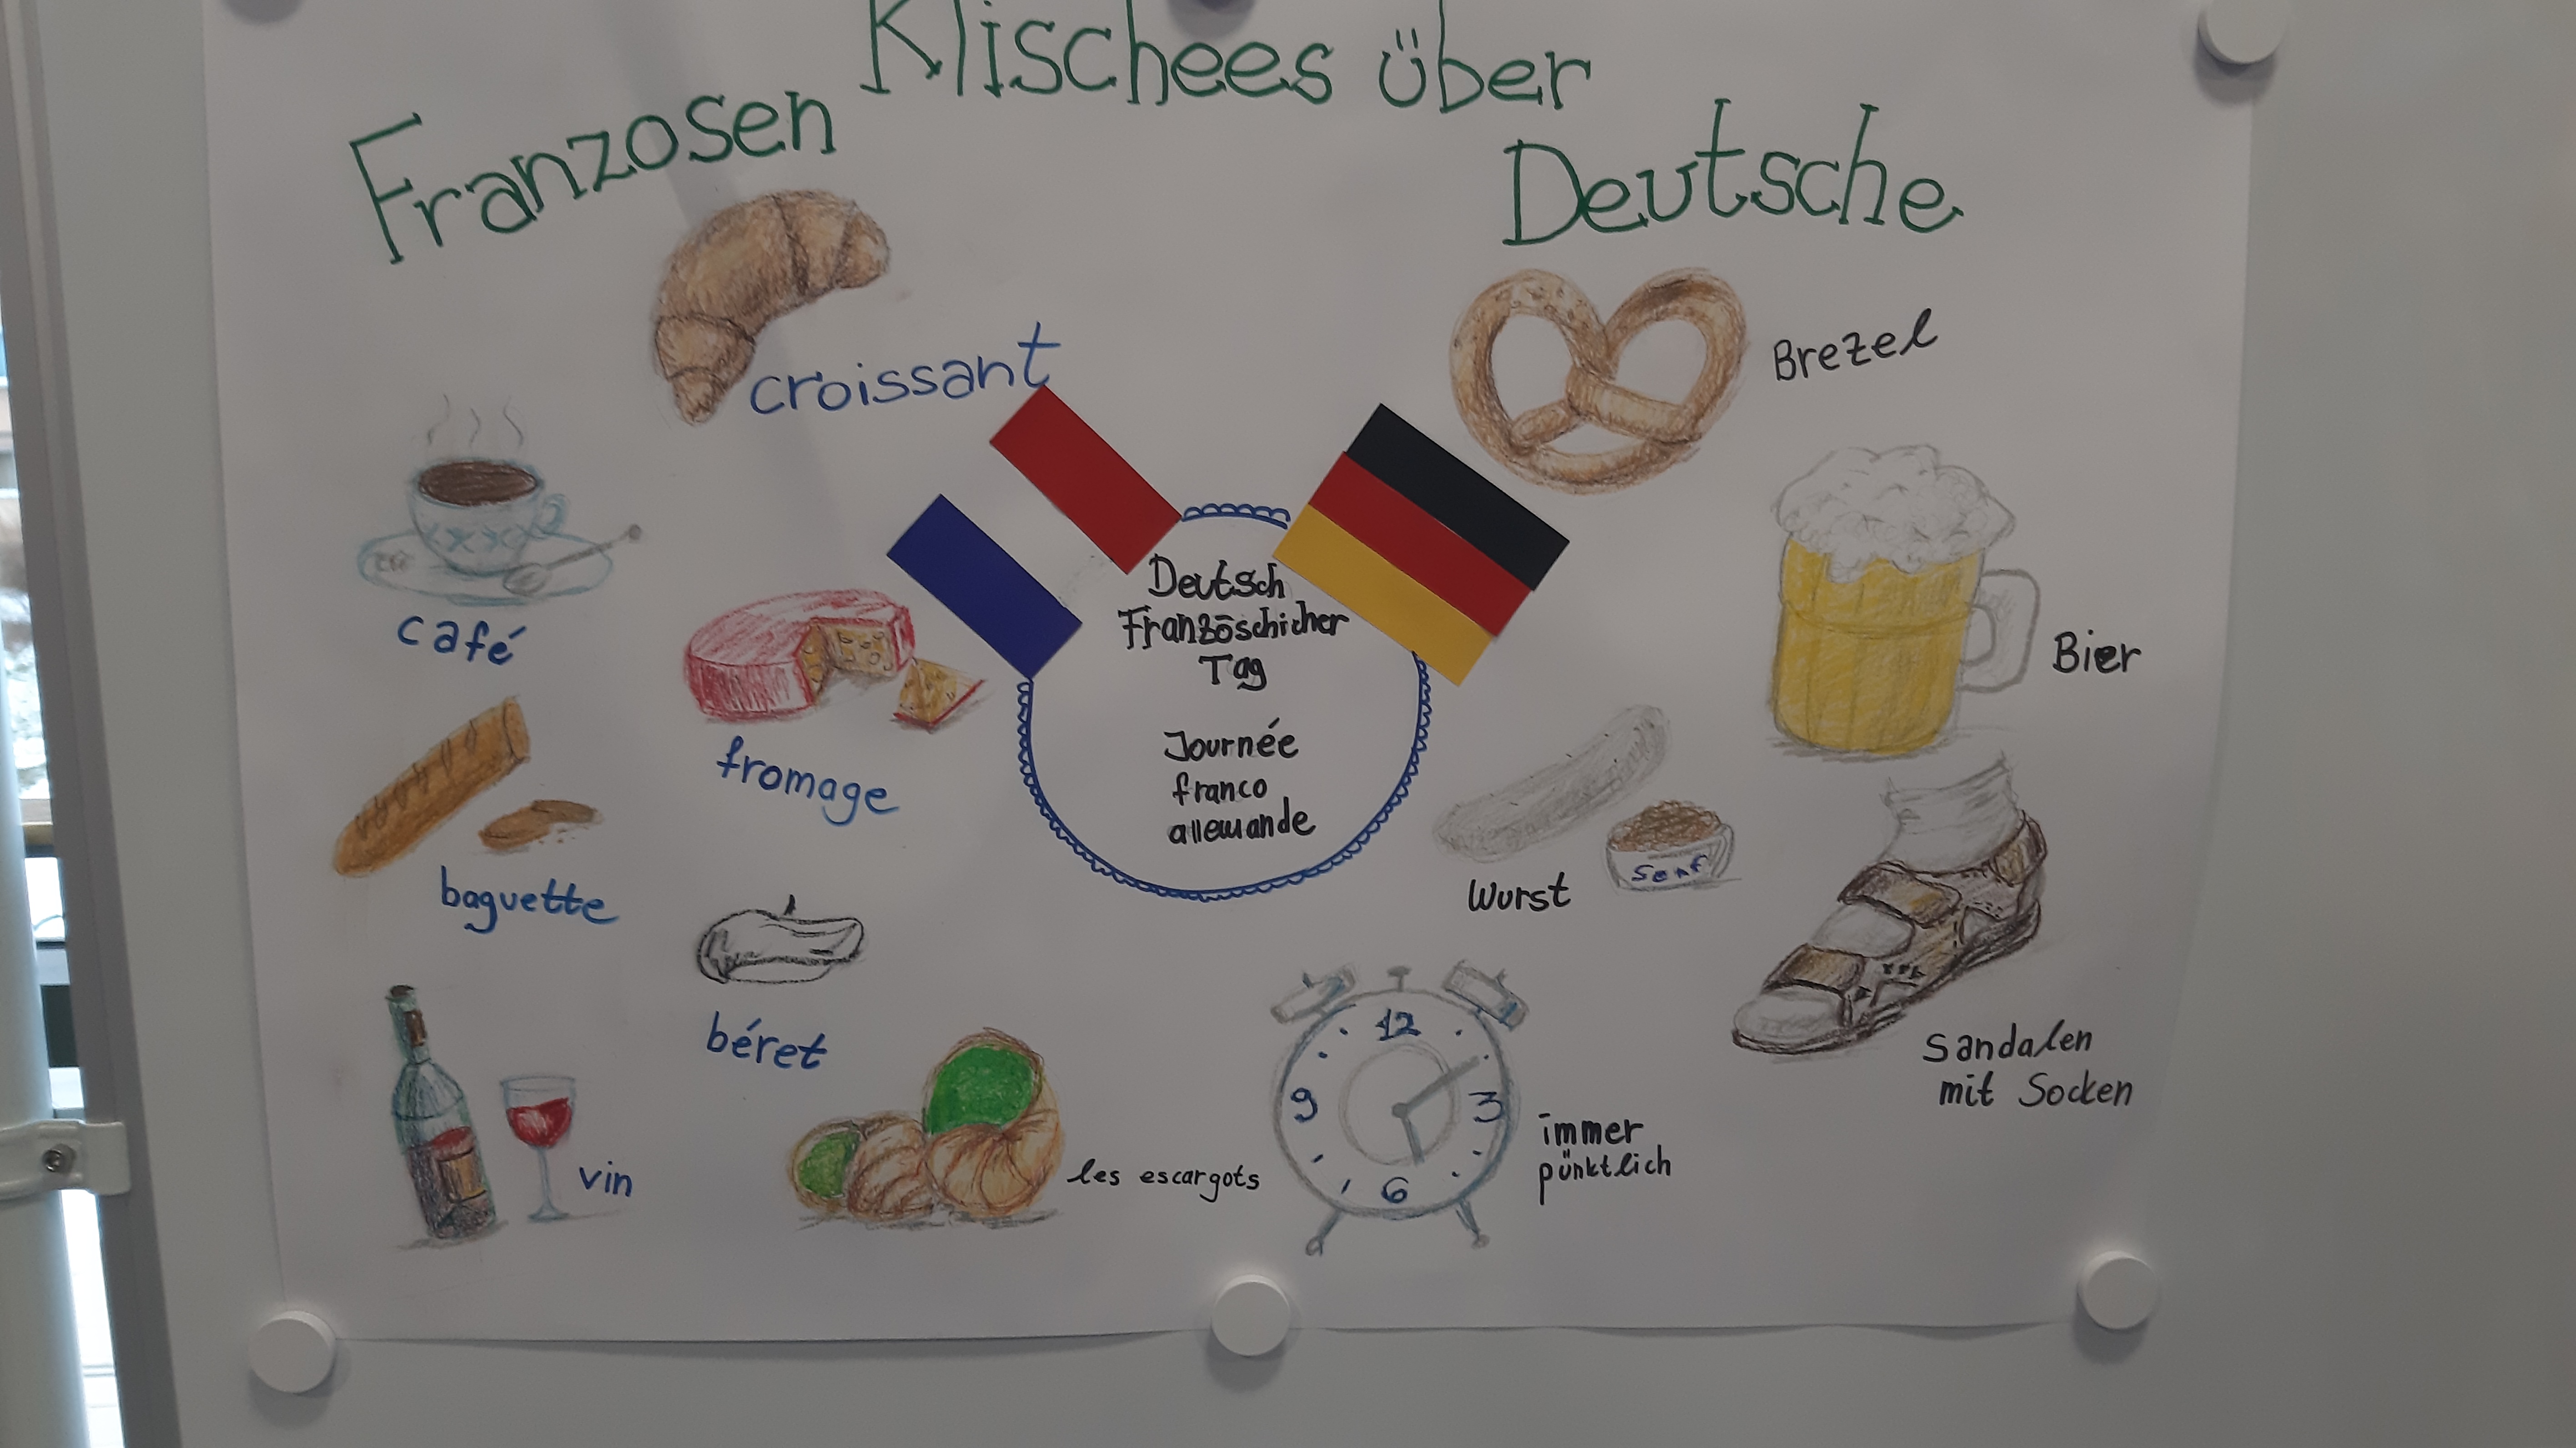 Klischees über
Franzosen
Deutsche
croissant
café
fromage
baguette
béret
vin
les escargots
Deutsch
Französchicher
Tag
Journée
franco
allemande
Brezel
Bier
Wurst
Senf
Sandalen
mit Socken
12
9
3
6
immer
pünktlich